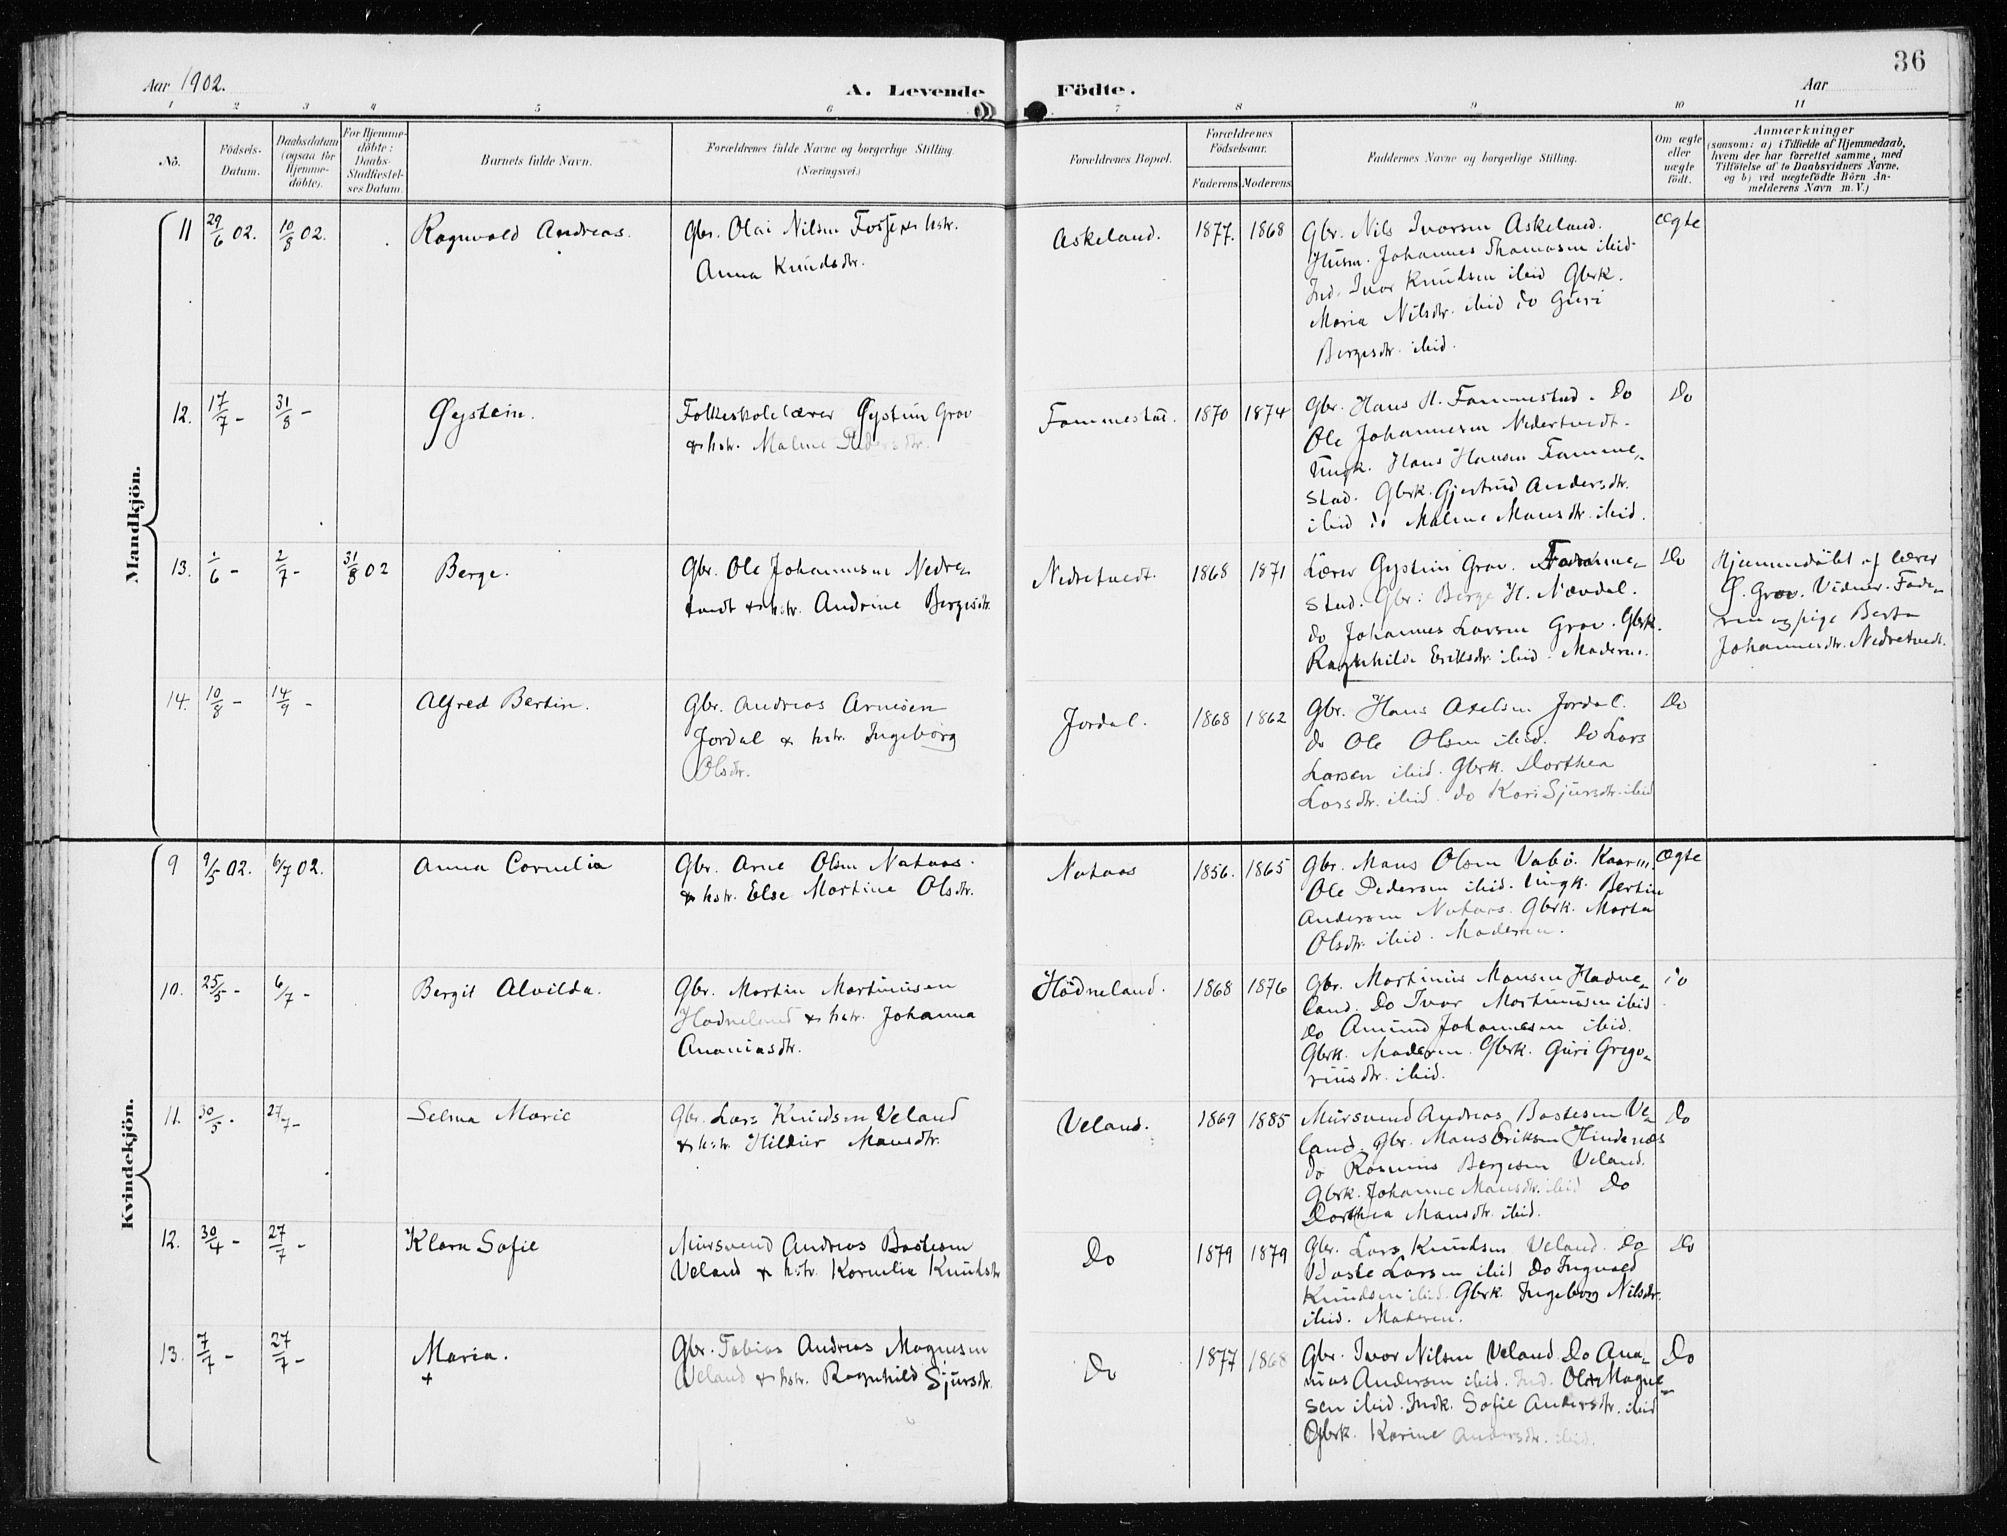 36
Aar 1902.
A. Levende
Födte.
Aar
1 2 3 4 5 6 7 8 9 10 11
No.
Födsels-
Datum.
Daabsdatum
(ogsaa for
Hjemme-
döbte).
For Hjemme-
döbte:
Daabs-
Stadfæstel-
ses Datum.
Barnets fulde Navn.
Forældrenes fulde Navne og borgerlige Stilling.
(Næringsvei.)
Forældrenes Bopæl.
Forældrenes
Födselsaar.
Faderens Moderens
Faddernes Navne og borgerlige Stilling.
Om ægte
eller
uægte
födt.
Anmærkninger
(saasom: a) i Tilfælde af Hjemmedaab,
hvem der har forrettet samme, med
Tilföielse af to Daabsvidners Navne,
og b) ved uægtefödte Börn An-
melderens Navn m. V.)
Mandkjön.
11
29/6 02.
10/8 02.
Ragnvald Andreas.
Gbr. Olai Nilsen Fosse & hstr.
Anna Knudsdtr.
Askeland.
1877.
1868
Gbr. Nils Ivarsen Askeland.
Husm. Johannes Thomasen ibid.
Ind. Ivar Knudsen ibid Gbrk.
Maria Nilsdtr. ibid do Guri
Bergesdtr. ibid.
Ægte
12.
17/7 -
31/8 -
Øystein.
Folkeskolelærer Øystein Grov
& hstr. Malene Pedersdtr.
Fammestad.
1870
1874
Gbr. Hans H. Fammestad. Do
Ole Johannesen Nedretvedt.
Ungk. Hans Hansen Famme-
stad. Gbrk. Gjertrud Andersdtr.
ibid do Malene Mansdtr. ibid.
Do
13.
1/6 -
2/7 -
31/8 02
Berge.
Gbr. Ole Johannesen Nedre-
tvedt & hstr. Andrine Bergesdtr.
Nedretvedt.
1868
1871
Lærer Øystein Grov. Famme-
stad. Gbr: Berge H. Nævdal.
do Johannes Larsen Grov. Gbrk.
Ragnhilda Eriksdtr. ibid. Moderen.
Do
Hjemmedöbt af lærer
Ø. Grov. Vidner. Fade-
ren og pige Berta
Johannesdtr. Nedretvedt.
14.
10/8 -
14/9 -
Alfred Bertin.
Gbr. Andreas Arnesen
Jordal & hstr. Ingeborg
Olsdtr.
Jordal.
1868
1862
Gbr. Hans Axelsen Jordal.
do Ole Olsen ibid. Do Lars
Larsen ibid. Gbrk. Dorthea
Larsdtr. ibid. do Kari Sjursdtr. ibid
Do
Kvindekjön.
9
9/5 02.
6/7 02.
Anna Cornelia
Gbr. Arne Olsen Nataas.
& hstr. Else Martine Olsdtr.
Nataas
1856.
1865
Gbr. Mans Olsen Vabö.
Ole Pedersen ibid. Ungk. Bertin
Andersen Nataas. Gbrk. Marta
Olsdtr. ibid. Moderen.
Ægte
10.
25/5 -
6/7 -
Bergit Alvilda.
Gbr. Martin Martinusen
Hodneland & hstr. Johanna
Ananiasdtr.
Hödneland.
1868
1876
Gbr. Martinus Mansen Hodne-
land. Do Ivar Martinusen ibid
do Amund Johannesen ibid.
Gbrk. Moderen. Gbrk. Guri Grego-
riusdtr. ibid.
do
11.
30/5 -
27/7 -
Selma Marie
Gbr. Lars Knudsen Veland
& hstr. Hildur Mansdtr.
Veland.
1869
1885
Mursvend Andreas Bastesen Ve-
land. Gbr. Mans Eriksen Hindenæs
do Rasmus Bergesen Veland.
Gbrk. Johanne Mansdtr. ibid Do
Dorthea Mansdtr. ibid.
Do
12.
30/4 -
27/7 -
Klara Sofie
Mursvend Andreas Bastesen
Veland & hstr. Kornelia Knudsdtr
Do
1879
1879
Gbr. Lars Knudsen Veland. Do
Baste Larsen ibid Do Ingvald
Knudsen ibid. Gbrk. Ingeborg Nilsdtr.
ibid. Moderen.
Do
13.
7/7 -
27/7 -
Maria.
+
Gbr. Tobias Andreas Magnesen
Veland & hstr. Ragnhild Sjursdtr.
Do
1877
1868
Gbr. Ivar Nilsen Veland Do Ana-
nias Andersen ibid. Ind. Ole Magne-
sen ibid. Indk. Sofie Andersdtr. ibid
Gbrk. Karine Andersdtr. ibid.
Do